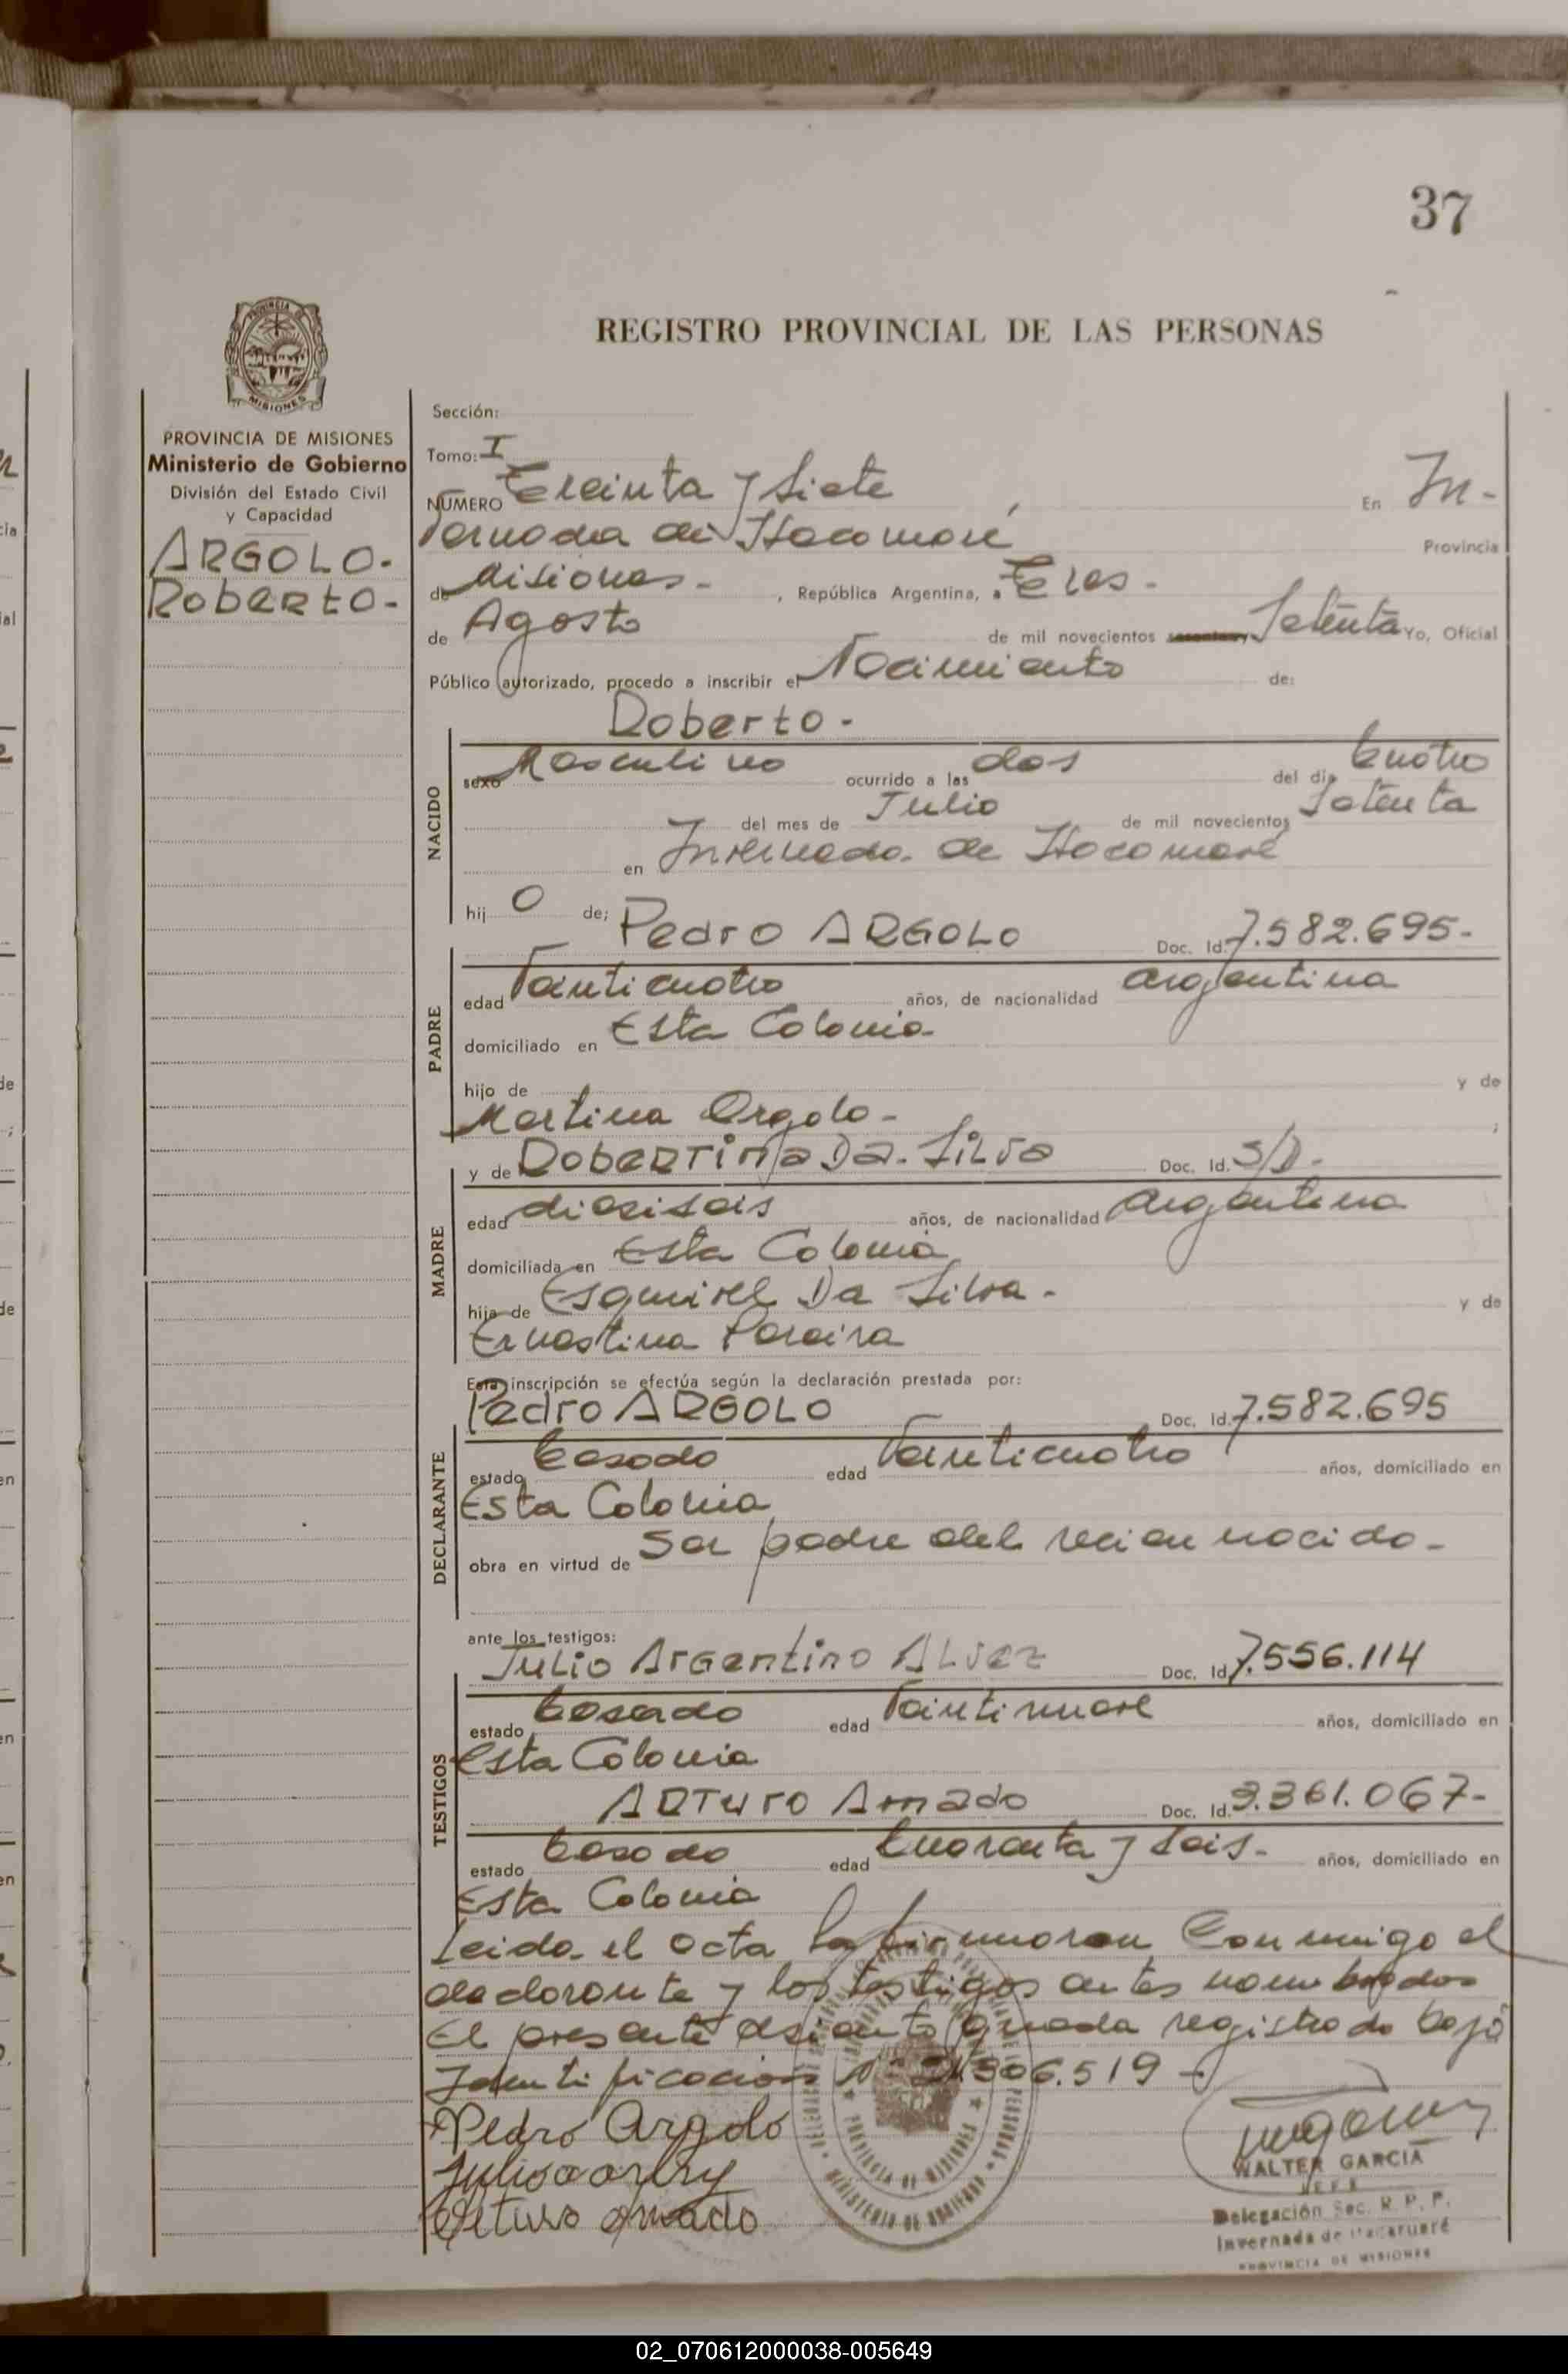 37
REGISTRO PROVINCIAL DE LAS PERSONAS
PROVINCIA DE MISIONES
Ministerio de Gobierno
División del Estado Civil
y Capacidad
ARGOLO.
Roberto-
Sección:
Tomo: I
NÚMERO Treinta y Siete En In-
vernada de Itacaruaré Provincia
de Misiones- , República Argentina, a Tres-
de Agosto de mil novecientos Setenta Yo, Oficial
Público autorizado, procedo a inscribir el Nacimiento de:
NACIDO
Roberto-
sexo Masculino ocurrido a las dos del día Cuatro
del mes de Julio de mil novecientos Setenta
en Invernada de Itacaruaré
hij o de; Pedro ARGOLO Doc. Id. 7.582.695-
PADRE
edad Veinticuatro años, de nacionalidad argentina
domiciliado en Esta Colonia
hijo de y de
Martina Argolo-
y de Robertina Da. Silva Doc. Id. S/D-
MADRE
edad dieciseis años, de nacionalidad argentina
domiciliada en Esta Colonia
hija de Esquivel Da Silva- y de
Ernestina Pereira
Esta inscripción se efectúa según la declaración prestada por:
Pedro ARGOLO Doc. Id. 7.582.695
DECLARANTE
estado Casado edad Veinticuatro años, domiciliado en
Esta Colonia
obra en virtud de Ser padre del recien nacido-
ante los testigos:
Julio Argentino Alvez Doc. Id. 7.556.114
TESTIGOS
estado Casado edad Veintinueve años, domiciliado en
Esta Colonia
Arturo Amado Doc. Id. 3.361.067-
estado Casado edad Cuarenta y Seis- años, domiciliado en
Esta Colonia
Leida el acta la firmaron Conmigo el
declarante y los testigos antes nombrados
El presente asiento queda registrado bajo
Identificacion Nº 21.306.519-
Pedro Argolo
Arturo Amado
WALTER GARCIA
JEFE
Delegación Sec. R. P. P.
Invernada de Itacaruaré
PROVINCIA DE MISIONES
02_070612000038-005649